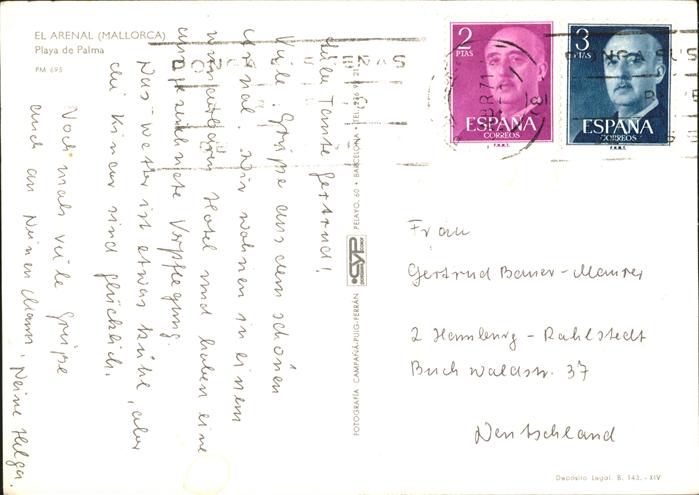 EL ARENAL (MALLORCA)
Playa de Palma
PM 695
Liebe Tante Gertrud!
Viele Grüße aus dem schönen
Arenal. Wir wohnen in einem
wunderbaren Hotel und haben eine
ausgezeichnete Verpflegung.
Das Wetter ist etwas kühl, aber
die Kinder sind glücklich.
Noch mals viele Grüße
auch an Deinen Mann, Deine Helga.
FOTOGRAFÍA CAMPAÑÁ-PUIG-FERRÁN
CYP
PELAYO, 60 • BARCELONA • TEL.
2
PTAS
ESPAÑA
CORREOS
F.N.M.T.
3
PTAS
ESPAÑA
CORREOS
F.N.M.T.
Frau
Gertrud Bauer-Maurer
2 Hamburg-Rahlstedt
Buchwaldstr. 37
Deutschland
Depósito Legal. B. 143. - XIV